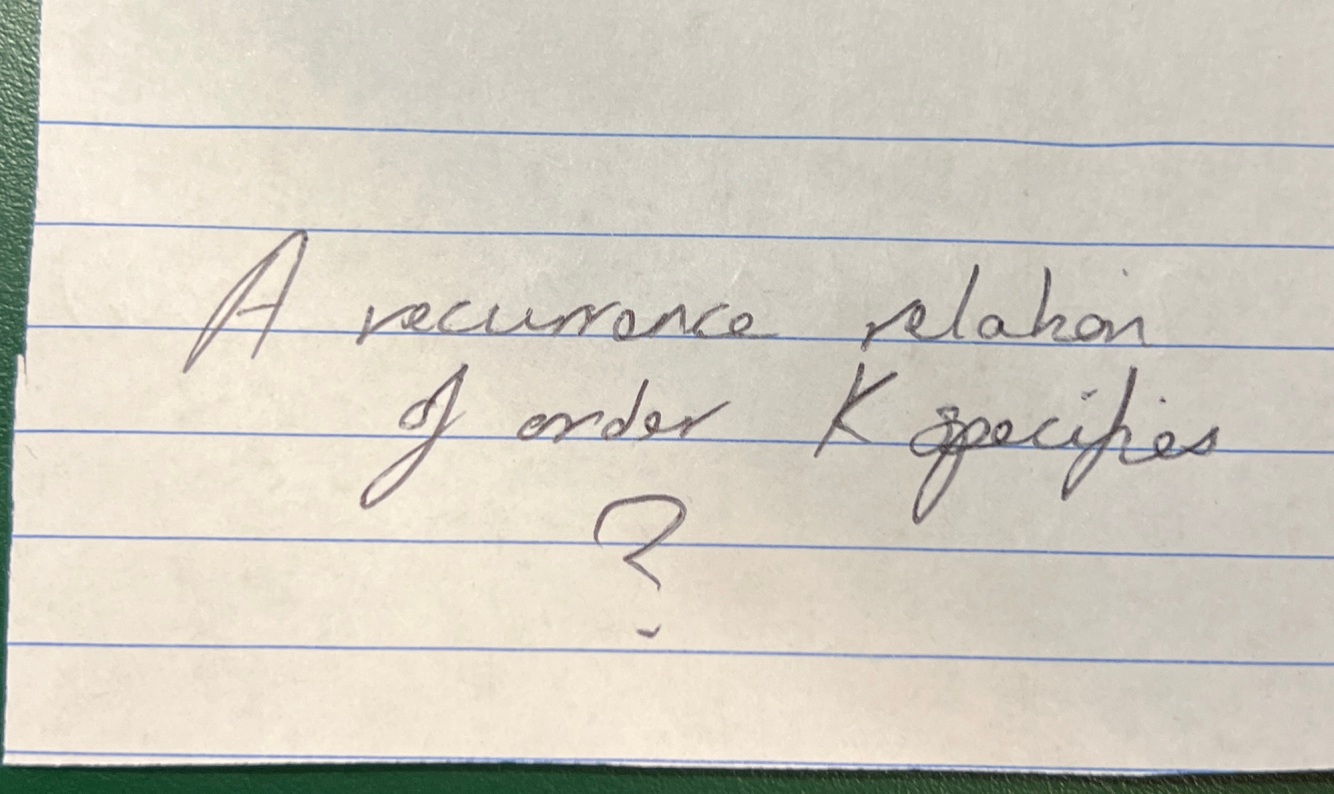 A recurrance relation
of order K specifies
?